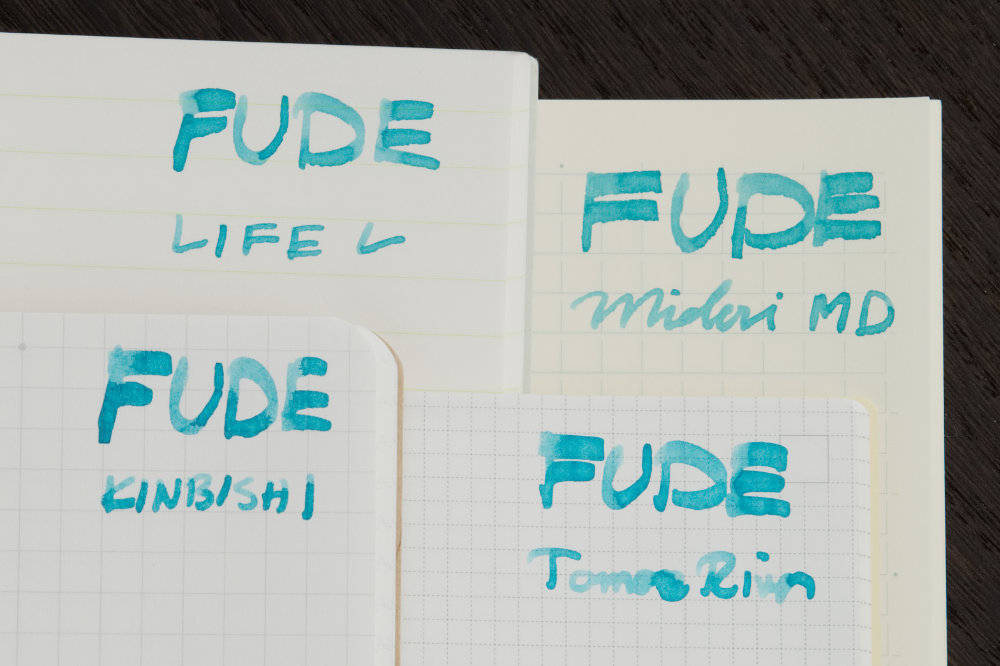 FUDE
LIFE L
FUDE
Midori MD
FUDE
KINBISHI
FUDE
Tomoe River